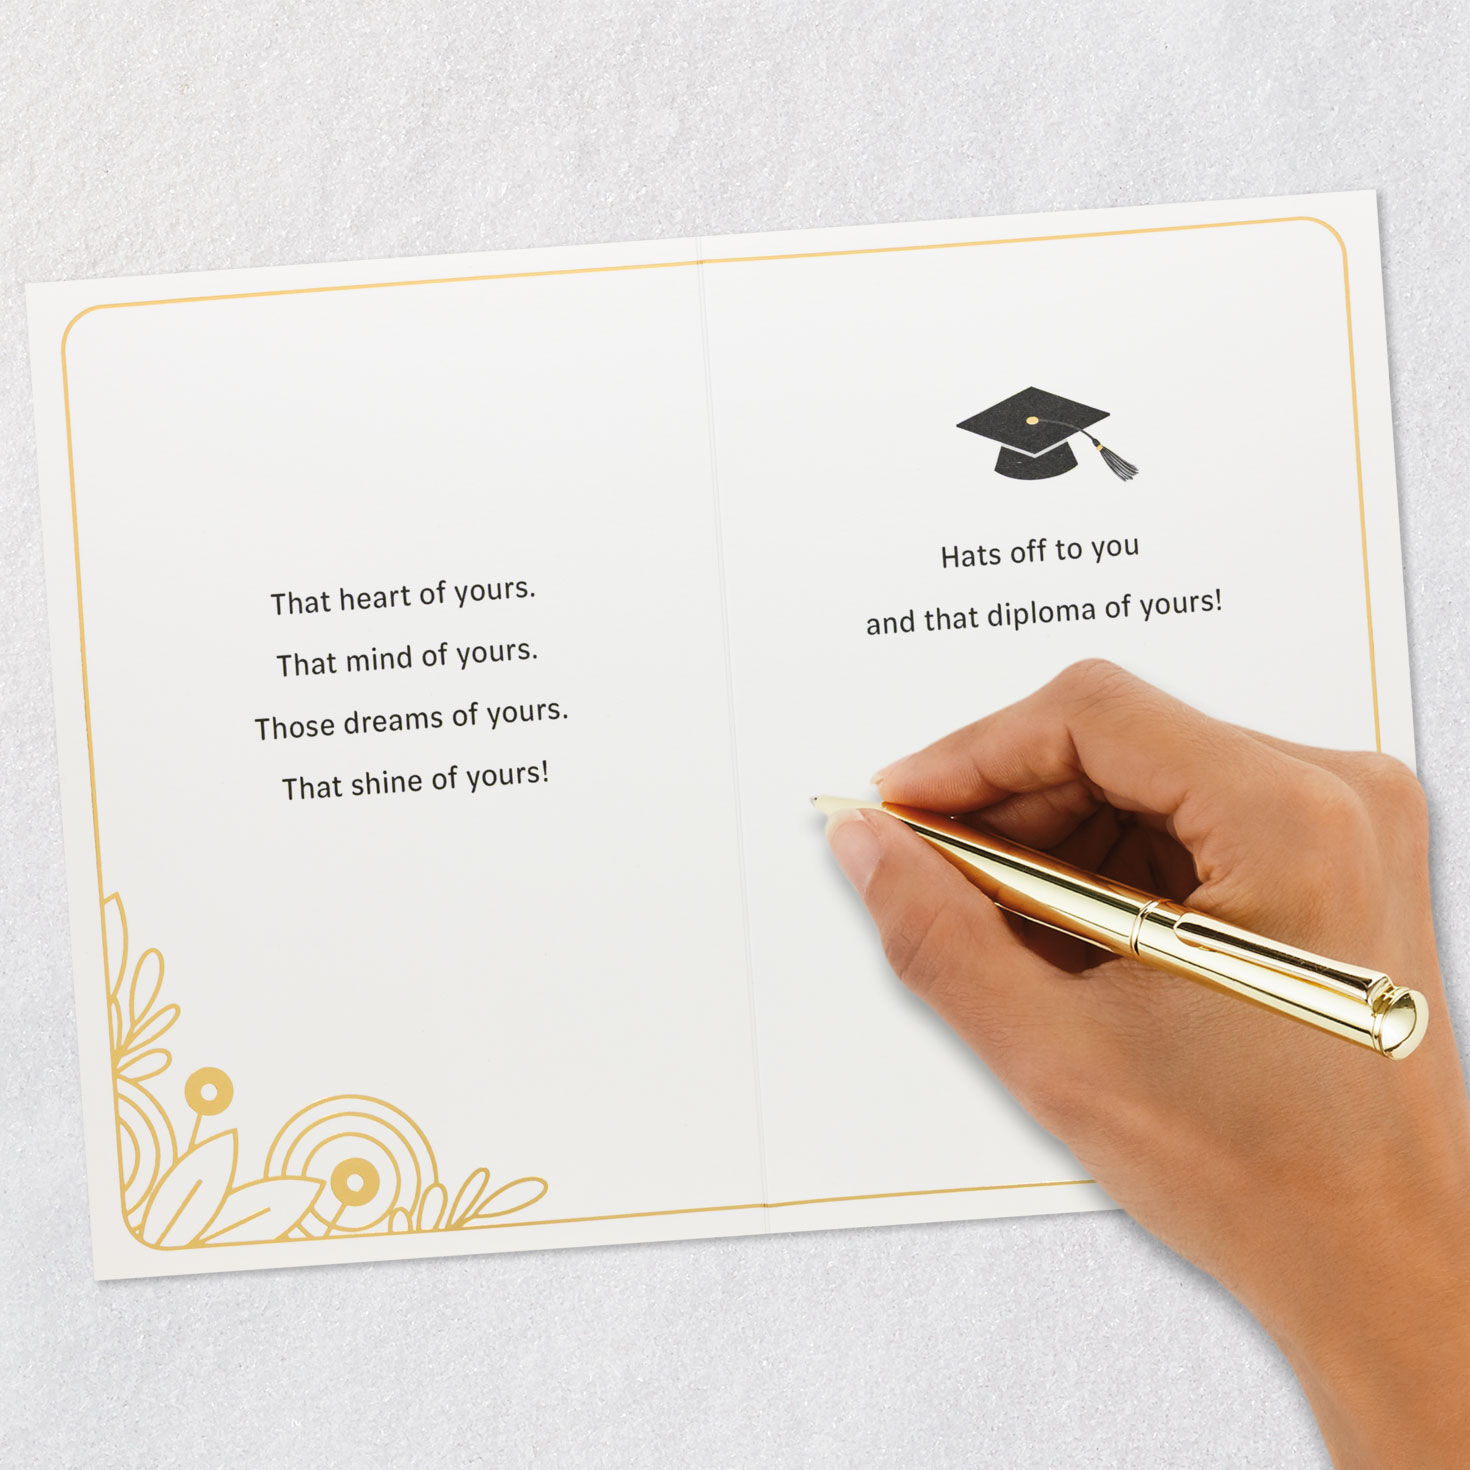 That heart of yours.
That mind of yours.
Those dreams of yours.
That shine of yours!
Hats off to you
and that diploma of yours!